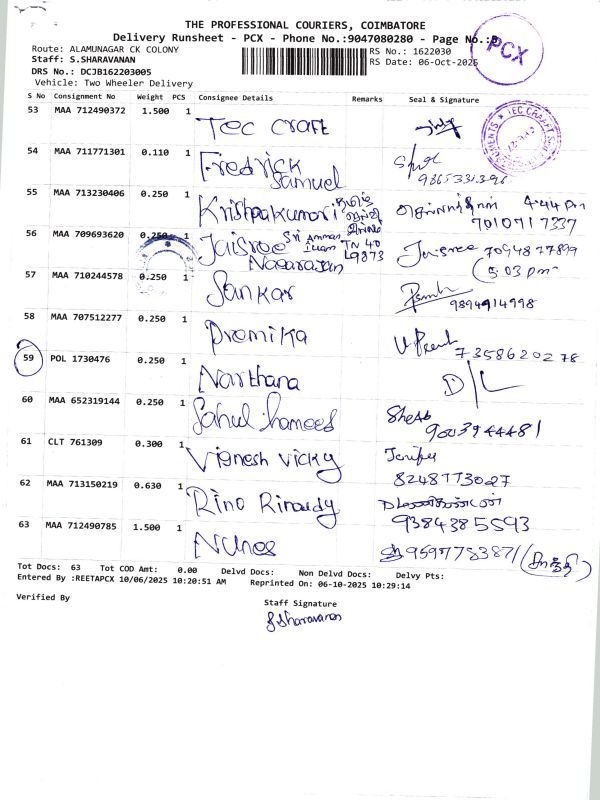 THE PROFESSIONAL COURIERS, COIMBATORE
Delivery Runsheet - PCX - Phone No.:9047080280 - Page No.:
PCX
Route: ALAMUNAGAR CK COLONY
RS No.: 1622030
Staff: S.SHARAVANAN
RS Date: 06-Oct-2025
DRS No.: DCJB162203005
Vehicle: Two Wheeler Delivery
S No Consignment No Weight PCS Consignee Details Remarks Seal & Signature
53 MAA 712490372 1.500 1 Tec craft
54 MAA 711771301 0.110 1 Fredrick Samuel
9865331396
55 MAA 713230406 0.250 1 Krishpakumari 4:44 pm
7010717337
56 MAA 709693620 0.250 1 Jaisree Nagarajan Sri Amman TN 40 L9873 Jaisree 7094877899
5:03 pm
57 MAA 710244578 0.250 1 Sankar 9894914998
58 MAA 707512277 0.250 1 Premika 7358620278
59 POL 1730476 0.250 1 Narthana D/L
60 MAA 652319144 0.250 1 Sahul hameed
9003944481
61 CLT 761309 0.300 1 Vignesh Vicky Jenifer
8248773027
62 MAA 713150219 0.630 1 Rino Rinaudy
9384385593
63 MAA 712490785 1.500 1 9597753871
Tot Docs: 63 Tot COD Amt: 0.00 Delvd Docs: Non Delvd Docs: Delvy Pts:
Entered By :REETAPCX 10/06/2025 10:20:51 AM Reprinted On: 06-10-2025 10:29:14
Verified By
Staff Signature
S.Sharavanan